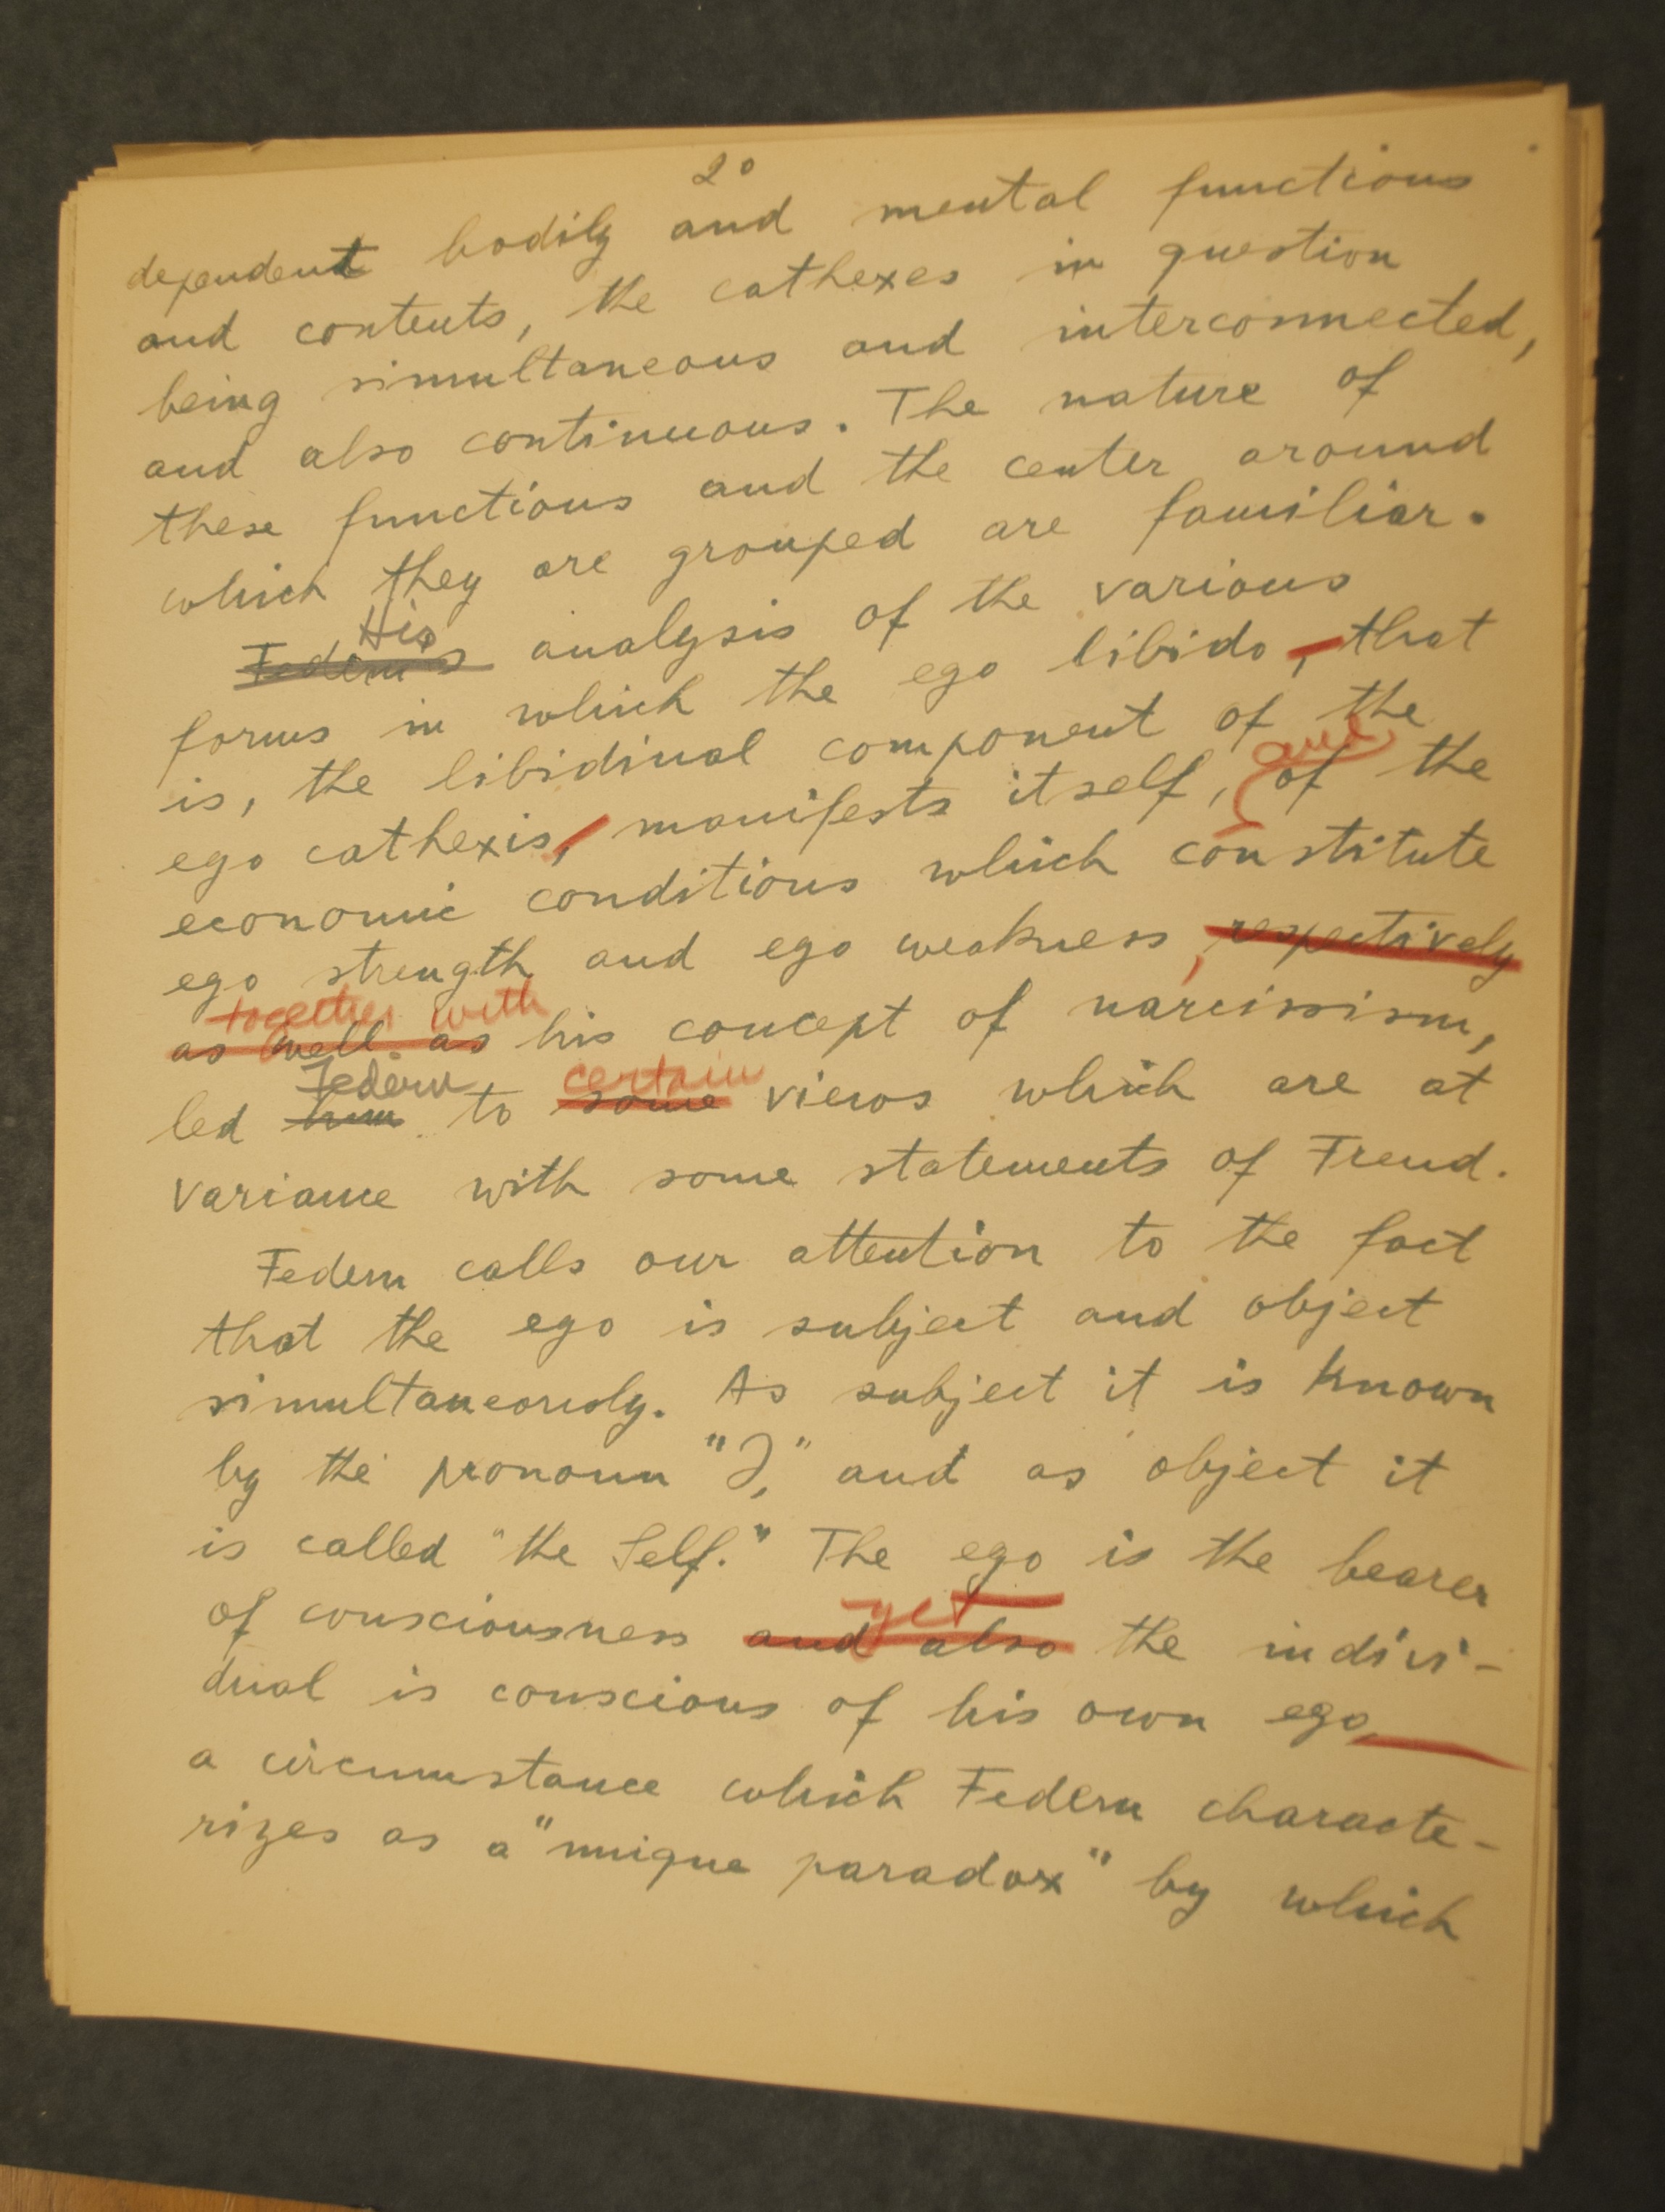 20
dependent bodily and mental functions
and contents, the cathexes in question
being simultaneous and interconnected,
and also continuous. The nature of
these functions and the center around
which they are grouped are familiar.
His
Federn's analysis of the various
forms in which the ego libido, that
is, the libidinal component of the
and
ego cathexis, manifests itself, of the
economic conditions which constitute
ego strength and ego weakness, respectively
together with
as well as his concept of narcissism,
Federn certain
led him to some views which are at
variance with some statements of Freud.
Federn calls our attention to the fact
that the ego is subject and object
simultaneously. As subject it is known
by the pronoun "I," and as object it
is called "the Self." The ego is the bearer
yet
of consciousness and also the indivi-
dual is conscious of his own ego,
a circumstance which Federn characte-
rizes as a "unique paradox" by which